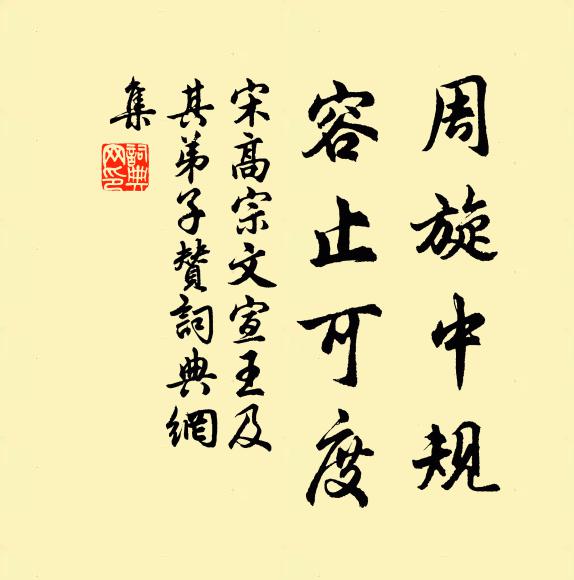 周旋中規
容止可度
宋高宗文宣王及
其弟子贊詞典網
集
詞典
网印